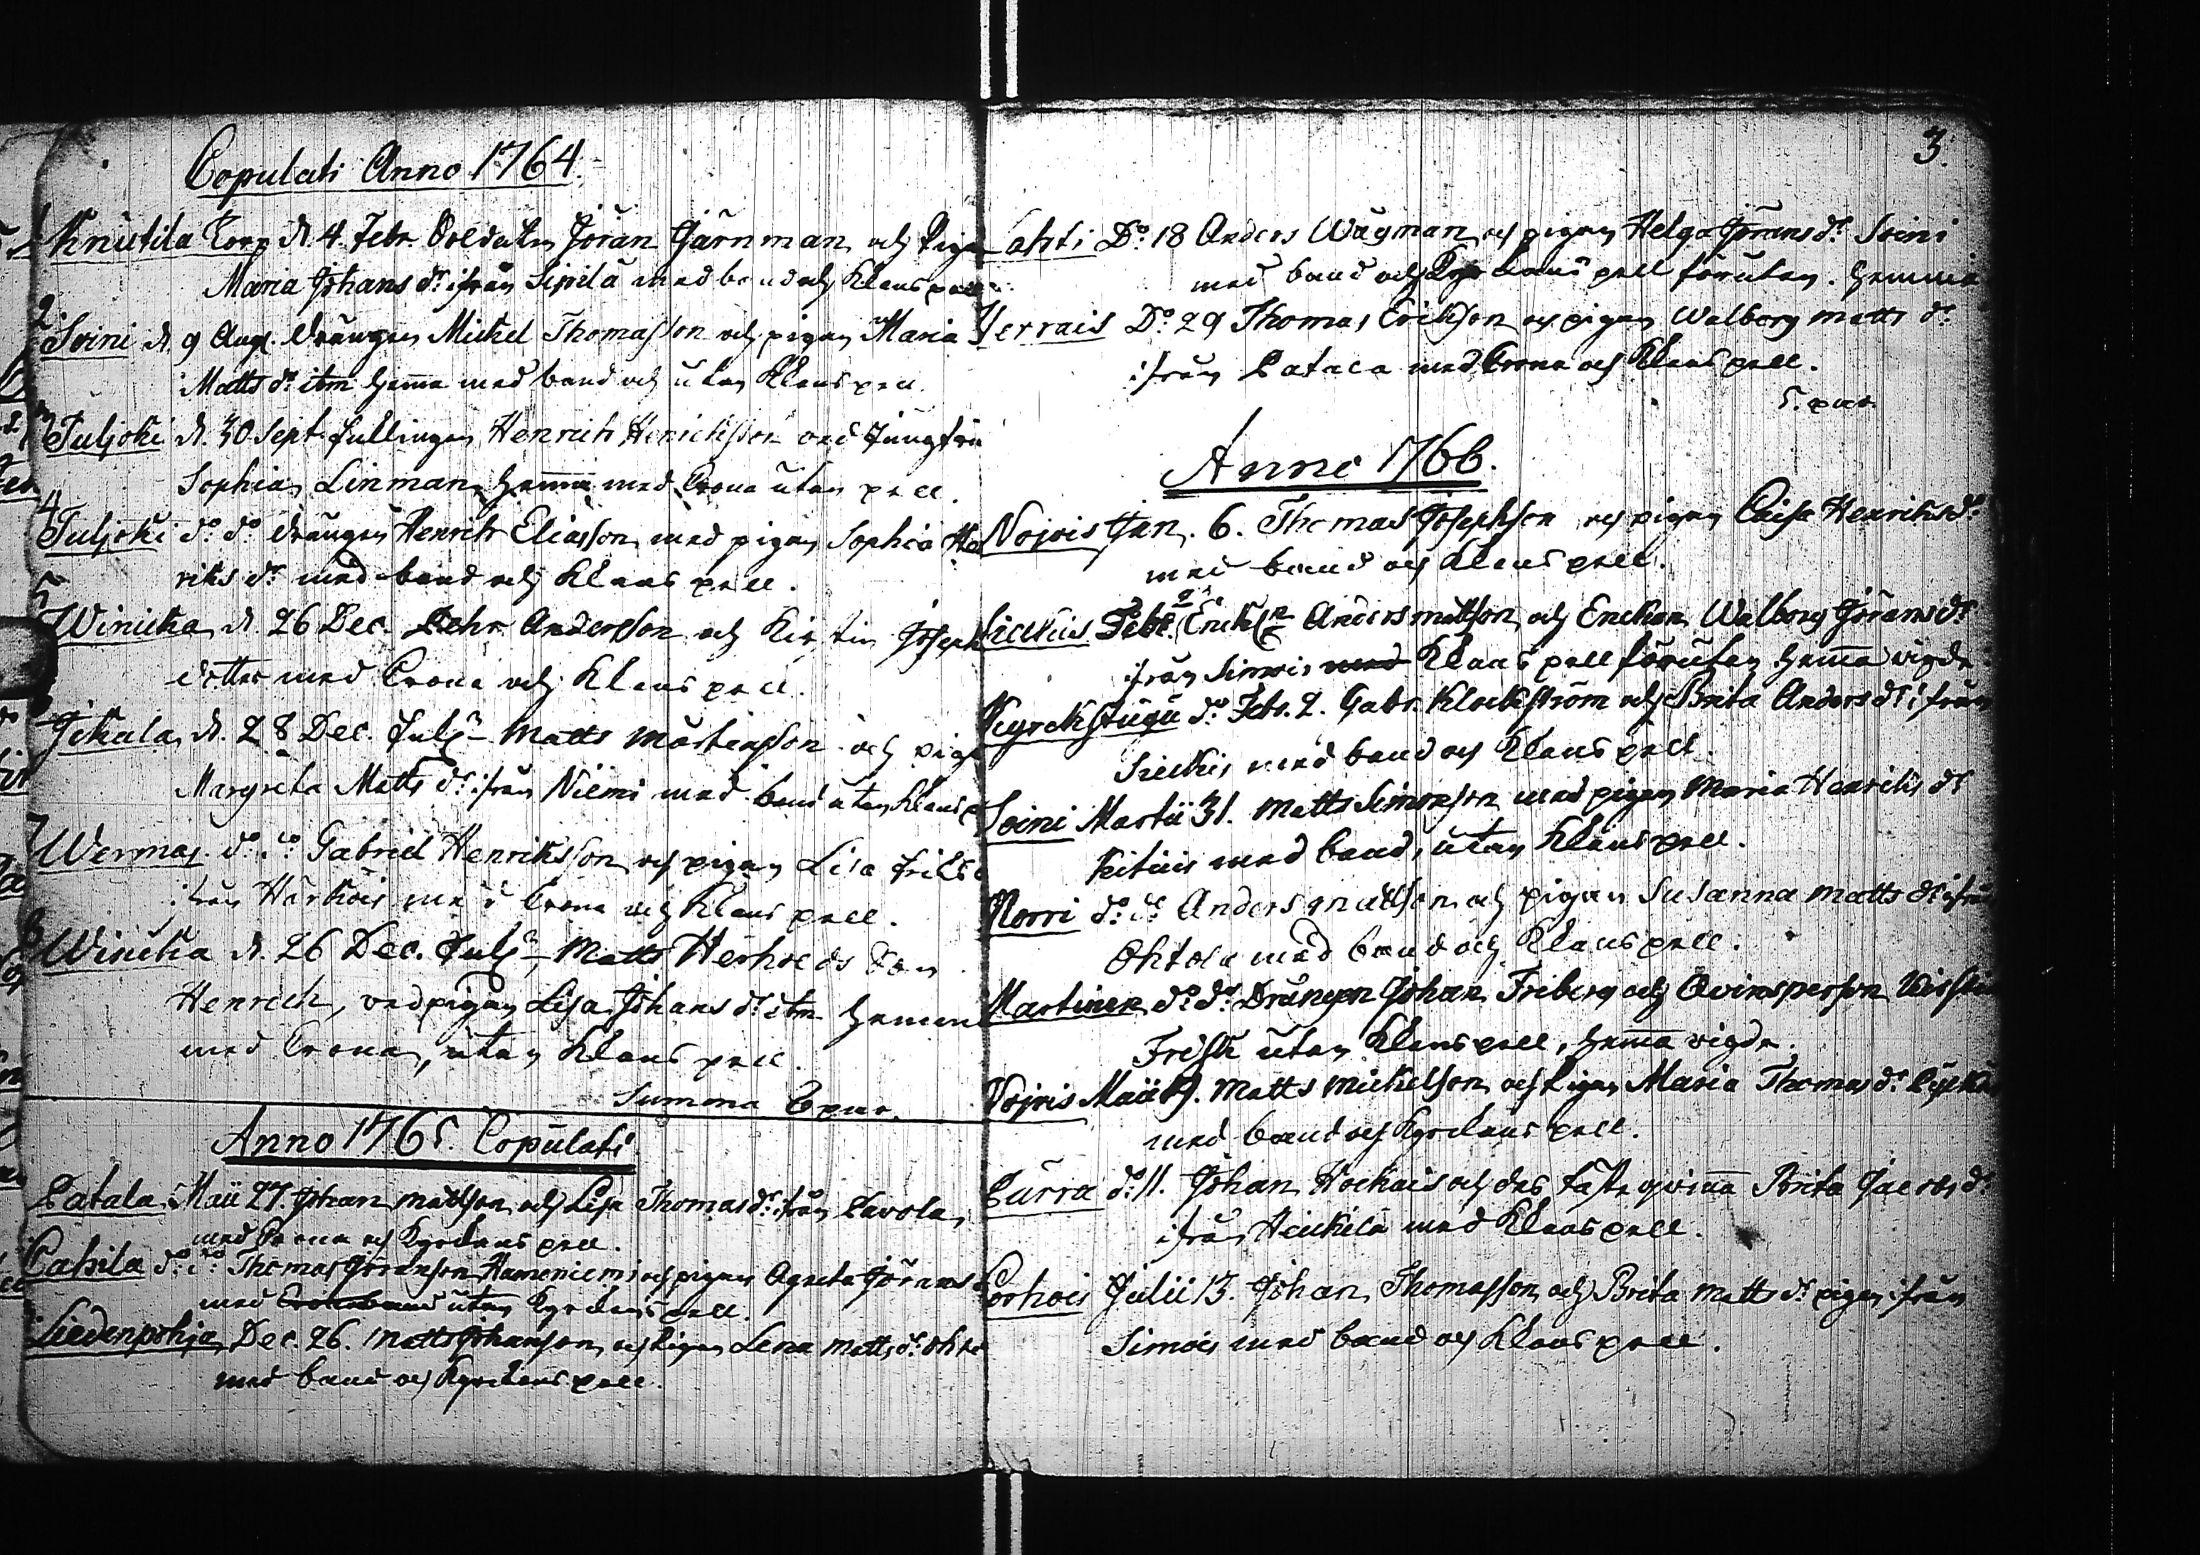 Copulati Anno 1764.
1 Knutila Torp d. 4. Febr. Soldaten Jöran Järnman och Pigan
Maria Johans dr. ifrån Sipilä med band och Klens pell
2. Soini d. 9 Aug. drängen Michel Thomasson och pigan Maria
Matts dr. itm hema med band och utan Klens pell
3 Juljoki d. 30 Sept. Henrich Henrichsson med Jungfru
Sophia Linman, hema med Crona utan pell.
4 Juljoki do. do. drängen Henrich Eliasson med pigan Sophia Hen
riks dr. med band och Klens pell.
5 Winicka d. 26 Dec. Pehr Andersson och Kirstin Joseph
dotter med Crona och Klens pell.
Jckala d. 28 Dec. Matts Mårtensson och pigan
Margreta Matts dr. ifrån Niemi med band utan Klens p
7 Wermas do. do. Gabriel Henriksson och pigan Lisa
ifrån Härköis med Crona och Klens pell.
8 Winicka d. 26 Dec. Matts son
Henrich, med pigan Lisa Johans dr. itm hemma
med Crona, utan Klens pell.
Summa 8 par.
Anno 1765. Copulati
Patala Maii 27. Johan Mattsson och Lisa Thomas dr. ifrån Pavola,
med Crona och Kyrckans pell.
Cahila do. do. Thomas Göransson Hameniemi och pigan Agneta Görans
med Cronaband utan Kyrckans pell.
Liedenpohja Dec. 26. Matts Johansson och Pigan Lena Matts dr.
med band och Kyrckans pell.
3.
Lahti Do. 18 Anders Wägman och pigan Helga Görans dr. Soini
med band och Kyrckans pell förutan. hemma
Verrais Do. 29 Thomas Ericksson och pigan Walborg Matts dr.
ifrån Patala med Crona och Klens pell.
5. par
Anno 1766.
Nojois Jan. 6. Thomas Josephson och pigan Caisa Henriks dr.
med band och Klens pell.
Febr. 2 Anders Mattson och Enckan Walborg Görans dr.
ifrån Simois med Klens pell förutan hema vigde
Kyrckstugu do. Febr. 2. Gabr. Klockström och Brita Anders dr. ifrån
med band och Klens pell.
Soini Martii 31. Matts Simonson med pigan Maria Henrichs dr
med band, utan Klens pell.
Norri do. do. Anders Mattson och pigan Susanna Matts dr. ifrån
Ohtola med band och Klens pell.
Martinen do. do. Drängen Johan Friberg och Qvinsperson
Frisk utan Klens pell, hema vigde.
Nojois Maii 19. Matts Michelson och Pigan Maria Thomas dr.
med band och Kyrckans pell.
Purra do. 11. Johan och des fäste qvina Brita Jacobs dr.
ifrån Heickilä med Klens pell.
Porhois Julii 13. Johan Thomasson och Brita Matts dr. pigan ifrån
Simois med band och Klens pell.